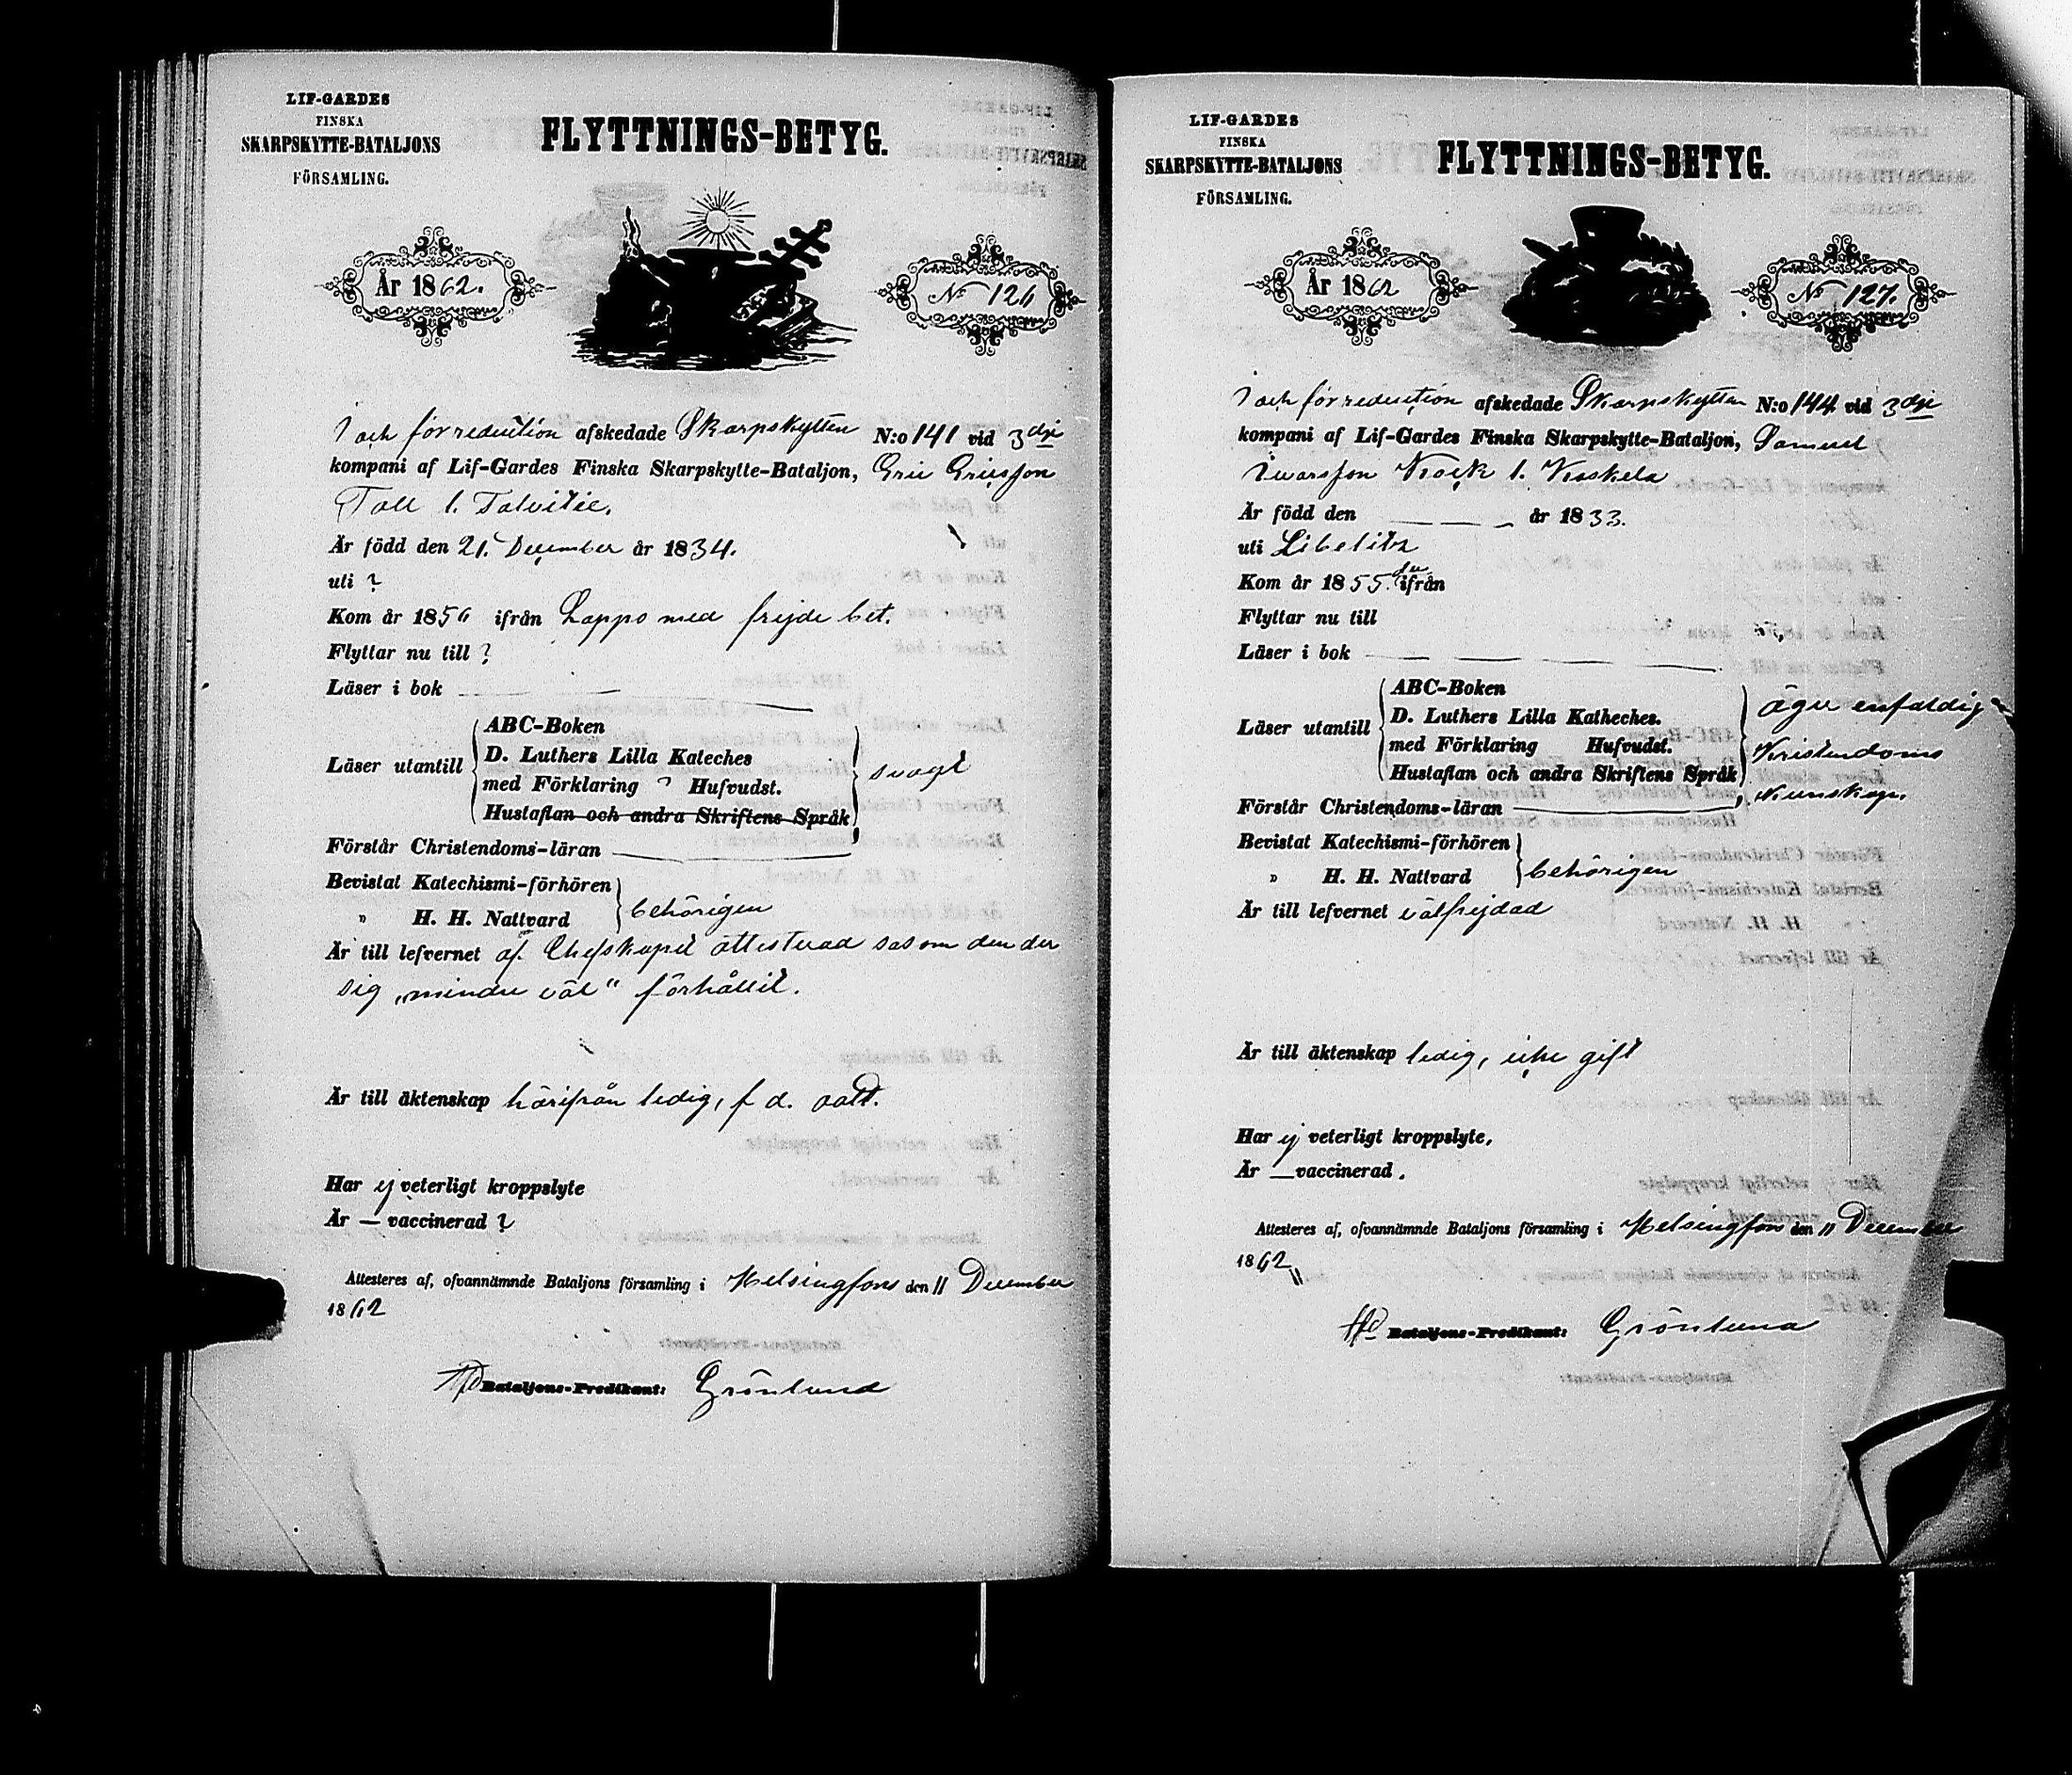 LIF-GARDES
FINSKA
SKARPSKYTTE-BATALJONS
FÖRSAMLING.
FLYTTNINGS-BETYG.
År 1862.
No 126
I och för reduction afskedade Skarpskytten N:o 141 vid 3dje
kompani af Lif-Gardes Finska Skarpskytte-Bataljon, Eric Ericsson
Tall l. Talvitie.
Är född den 21. December år 1834.
uti ?
Kom år 1856 ifrån Lappo med frejde bet.
Flyttar nu till ?
Läser i bok
Läser utantill
ABC-Boken
D. Luthers Lilla Kateches
med Förklaring Hufvudst.
Hustaflan och andra Skriftens Språk
svagt
Förstår Christendoms-läran
Bevistat Katechismi-förhören
" H. H. Nattvard
behörigen
Är till lefvernet af Chefskapet attesterad såsom den der
sig „mindre väl" förhållit.
Är till äktenskap härifrån ledig, f d.
Har ej veterligt kroppslyte
Är — vaccinerad ?
Attesteres af, ofvannämnde Bataljons församling i Helsingfors den 11 December
1862
Bataljons-Predikant: Grönlund
LIF-GARDES
FINSKA
SKARPSKYTTE-BATALJONS
FÖRSAMLING.
FLYTTNINGS-BETYG.
År 1862
No 127.
I och för reduction afskedade Skarpskytten N:o 144 vid 3dje
kompani af Lif-Gardes Finska Skarpskytte-Bataljon, Samuel
Iwarsson Kock l. Koskela
Är född den — — — år 1833.
uti Libelitz
Kom år 1855 ifrån
Flyttar nu till
Läser i bok
Läser utantill
ABC-Boken
D. Luthers Lilla Katheches.
med Förklaring Hufvudst.
Hustaflan och andra Skriftens Språk
äger enfaldig
Kristendoms
Kunskap.
Förstår Christendoms-läran
Bevistat Katechismi-förhören
" H. H. Nattvard
behörigen
Är till lefvernet välfrejdad
Är till äktenskap ledig, icke gift
Har ej veterligt kroppslyte.
Är — vaccinerad.
Attesteres af, ofvannämnde Bataljons församling i Helsingfors den 11 December
1862
Bataljons-Predikant: Grönlund